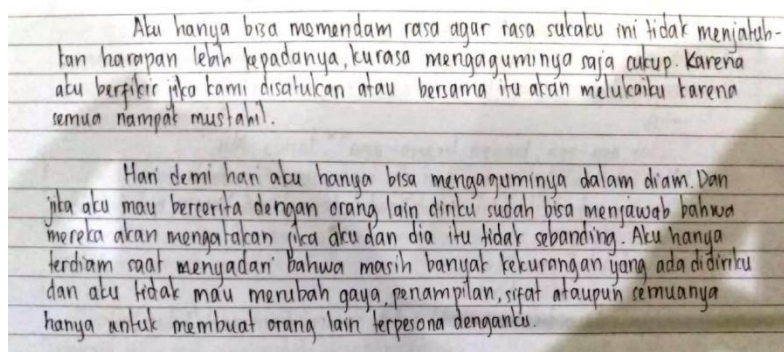 Aku hanya bisa memendam rasa agar rasa sukaku ini tidak menjatuh-
kan harapan lebih kepadanya, kurasa mengaguminya saja cukup. Karena
aku berfikir jika kami disatukan atau bersama itu akan melukaiku karena
semua nampak mustahil.
Hari demi hari aku hanya bisa mengaguminya dalam diam. Dan
jika aku mau bercerita dengan orang lain diriku sudah bisa menjawab bahwa
mereka akan mengatakan jika aku dan dia itu tidak sebanding. Aku hanya
terdiam saat menyadari bahwa masih banyak kekurangan yang ada didiriku
dan aku tidak mau merubah gaya, penampilan, sifat ataupun semuanya
hanya untuk membuat orang lain terpesona denganku.